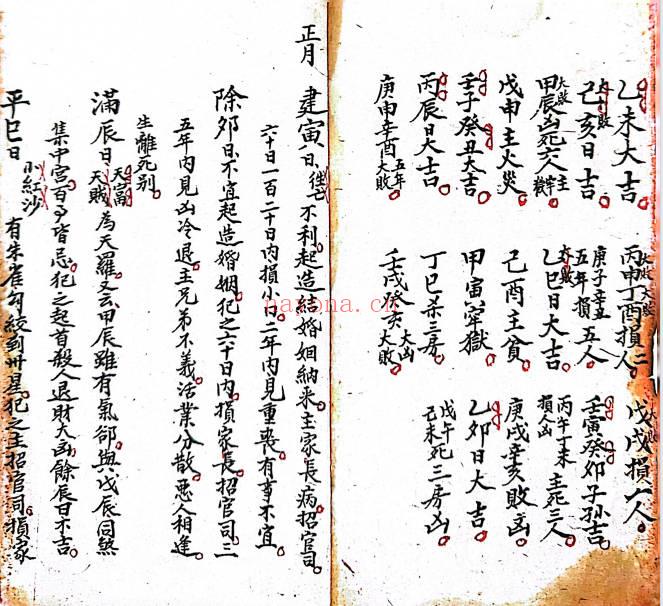 乙未大吉 丙申丁酉損人二 戊戌損六人
大敗 大敗 大敗 大敗
己亥日吉 庚子辛丑五年損五人 壬寅癸卯子孫吉
大敗
甲辰凶死六人主牢獄 乙巳日大吉 丙午丁未損人凶主死三人
大敗 大敗
戊申主火災 己酉主貧 庚戌辛亥敗凶
壬子癸丑大吉 甲寅牢獄 乙卯日大吉
丙辰日大吉 丁巳杀三房 戊午己未死三房凶
庚申辛酉五年大敗 壬戌癸亥大凶大敗
正月 建寅日往亡不利起造結婚姻納采主家長病招官司
六十日一百二十日内損小口二年内見重喪有事不宜
除夘日不宜起造婚姻犯之六十日内損家長招官司三
五年内見凶冷退主兄弟不義活業分散惡人相逢
生離死别
滿辰日天富天賊為天羅又云甲辰雖有氣卻與戊辰同煞
集中宮百事皆忌犯之起首殺人退財大凶餘辰日不吉
平巳日小紅沙有朱雀勾絞到州星犯之主招官司損家
nayona.cn